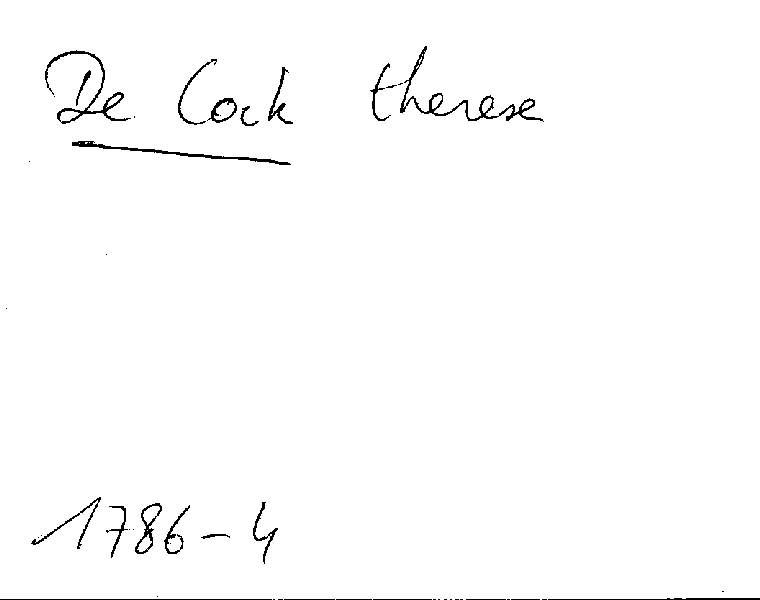 De Cock therese
1786-4